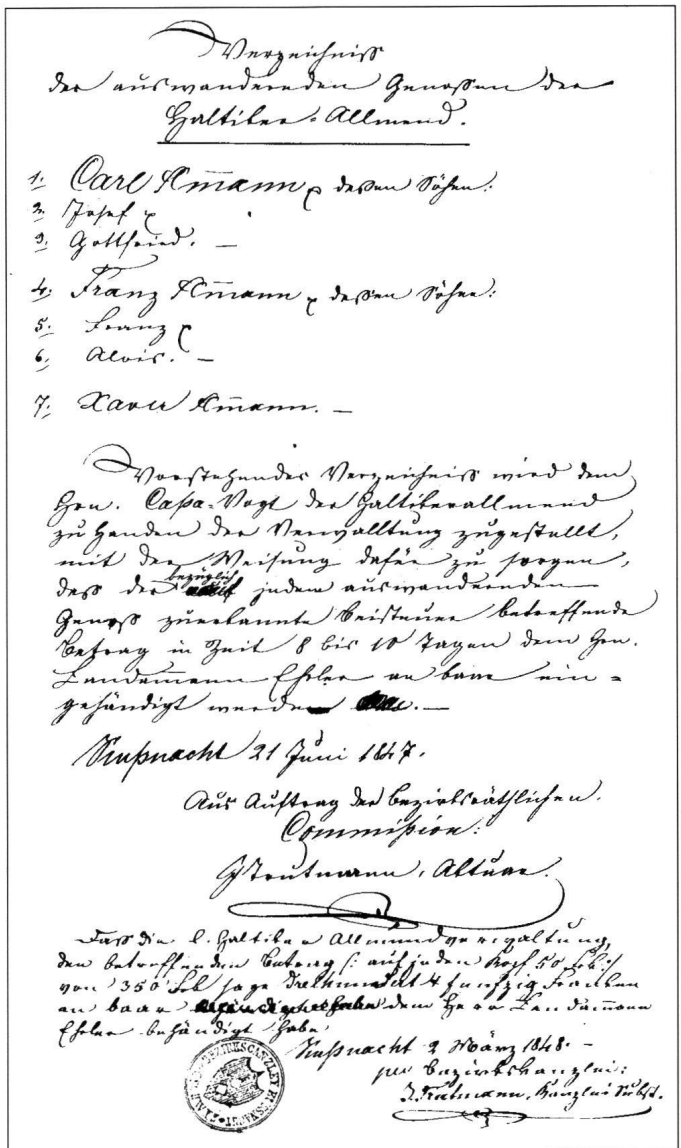 Verzeichniss
der auswandernden Genossen der
Haltiker-Allmend.
1. Carl Am̅ann, dessen Söhne:
2. Josef
3. Gottfried. —
4. Franz Am̅ann, dessen Söhne:
5. Franz
6. Alois. —
7. Xaver Am̅ann. —
Vorstehendes Verzeichniss wird dem
Hrn. Cassa-Vogt der Haltikerallmend
zu Handen der Verwalltung zugestellt,
mit der Weisung dafür zu sorgen,
dass der bezüglich jedem auswandernden
Genoss zuerkannte Beisteuer betreffende
Betrag in Zeit 8 bis 10 Tagen dem Hrn.
Landammann Ehrler an baar ein-
gehändigt werde. —
Küßnacht 21 Juni 1847.
Aus Auftrag der bezirksräthlichen
Commission:
Trutmann, Aktuar.
Dass die l. Haltiker Allmendverwaltung,
den betreffenden Betrag /: auf jeden Kopf 50 Frk :/
von 350 Frk sage Dreihundert & funfzig Franken
an baar dem Herr Landammann
Ehrler behändigt habe
Küßnacht 2 März 1848. —
per Bezirkskanzlei:
Trutmann, Kanzlei Subst.